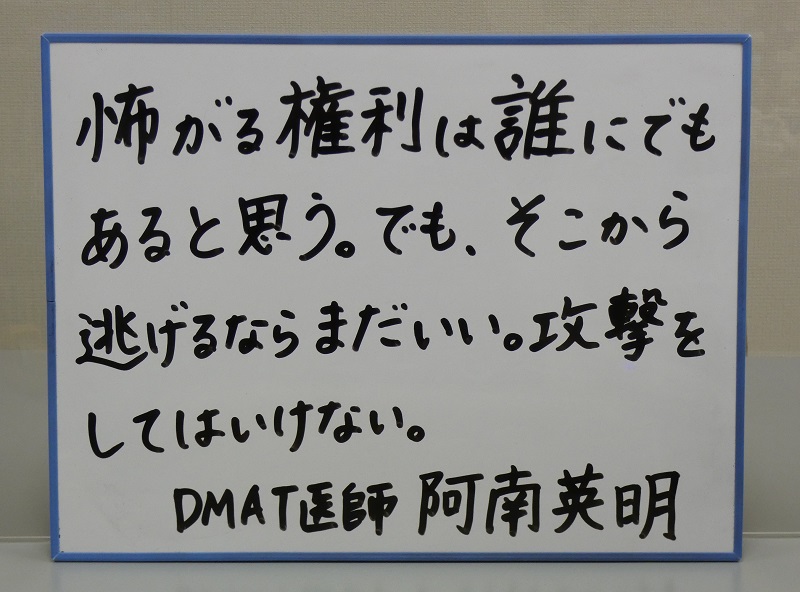 怖がる権利は誰にでも
あると思う。でも、そこから
逃げるならまだいい。攻撃を
してはいけない。
DMAT医師 阿南英明